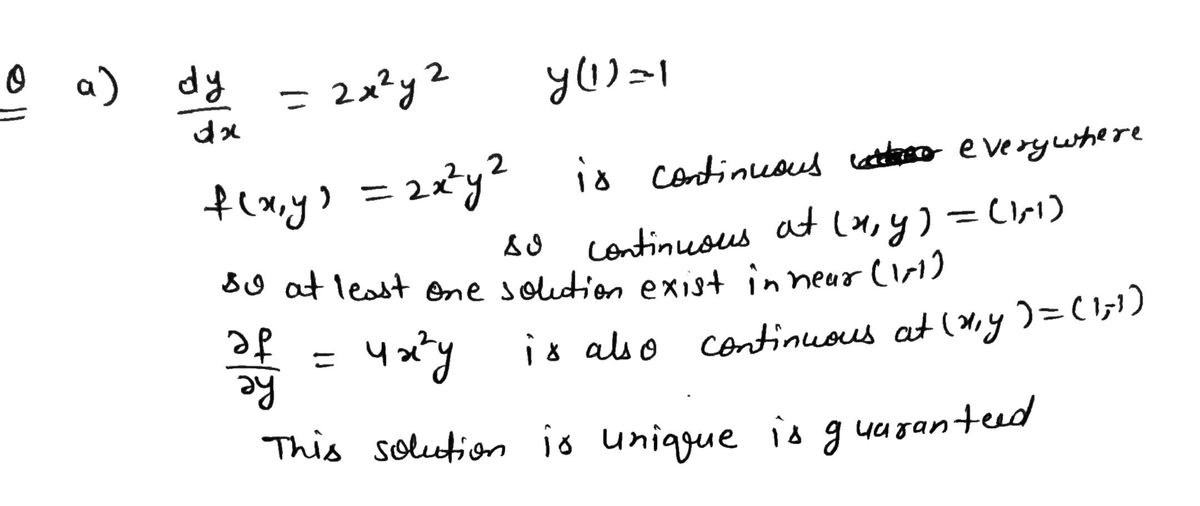 Q a) dy/dx = 2x²y² y(1)=1
f(x,y) = 2x²y² is continuous everywhere
so continuous at (x,y) = (1,-1)
so at least one solution exist in near (1,-1)
∂f/∂y = 4x²y is also continuous at (x,y) = (1,-1)
This solution is uniqque is guaranteed